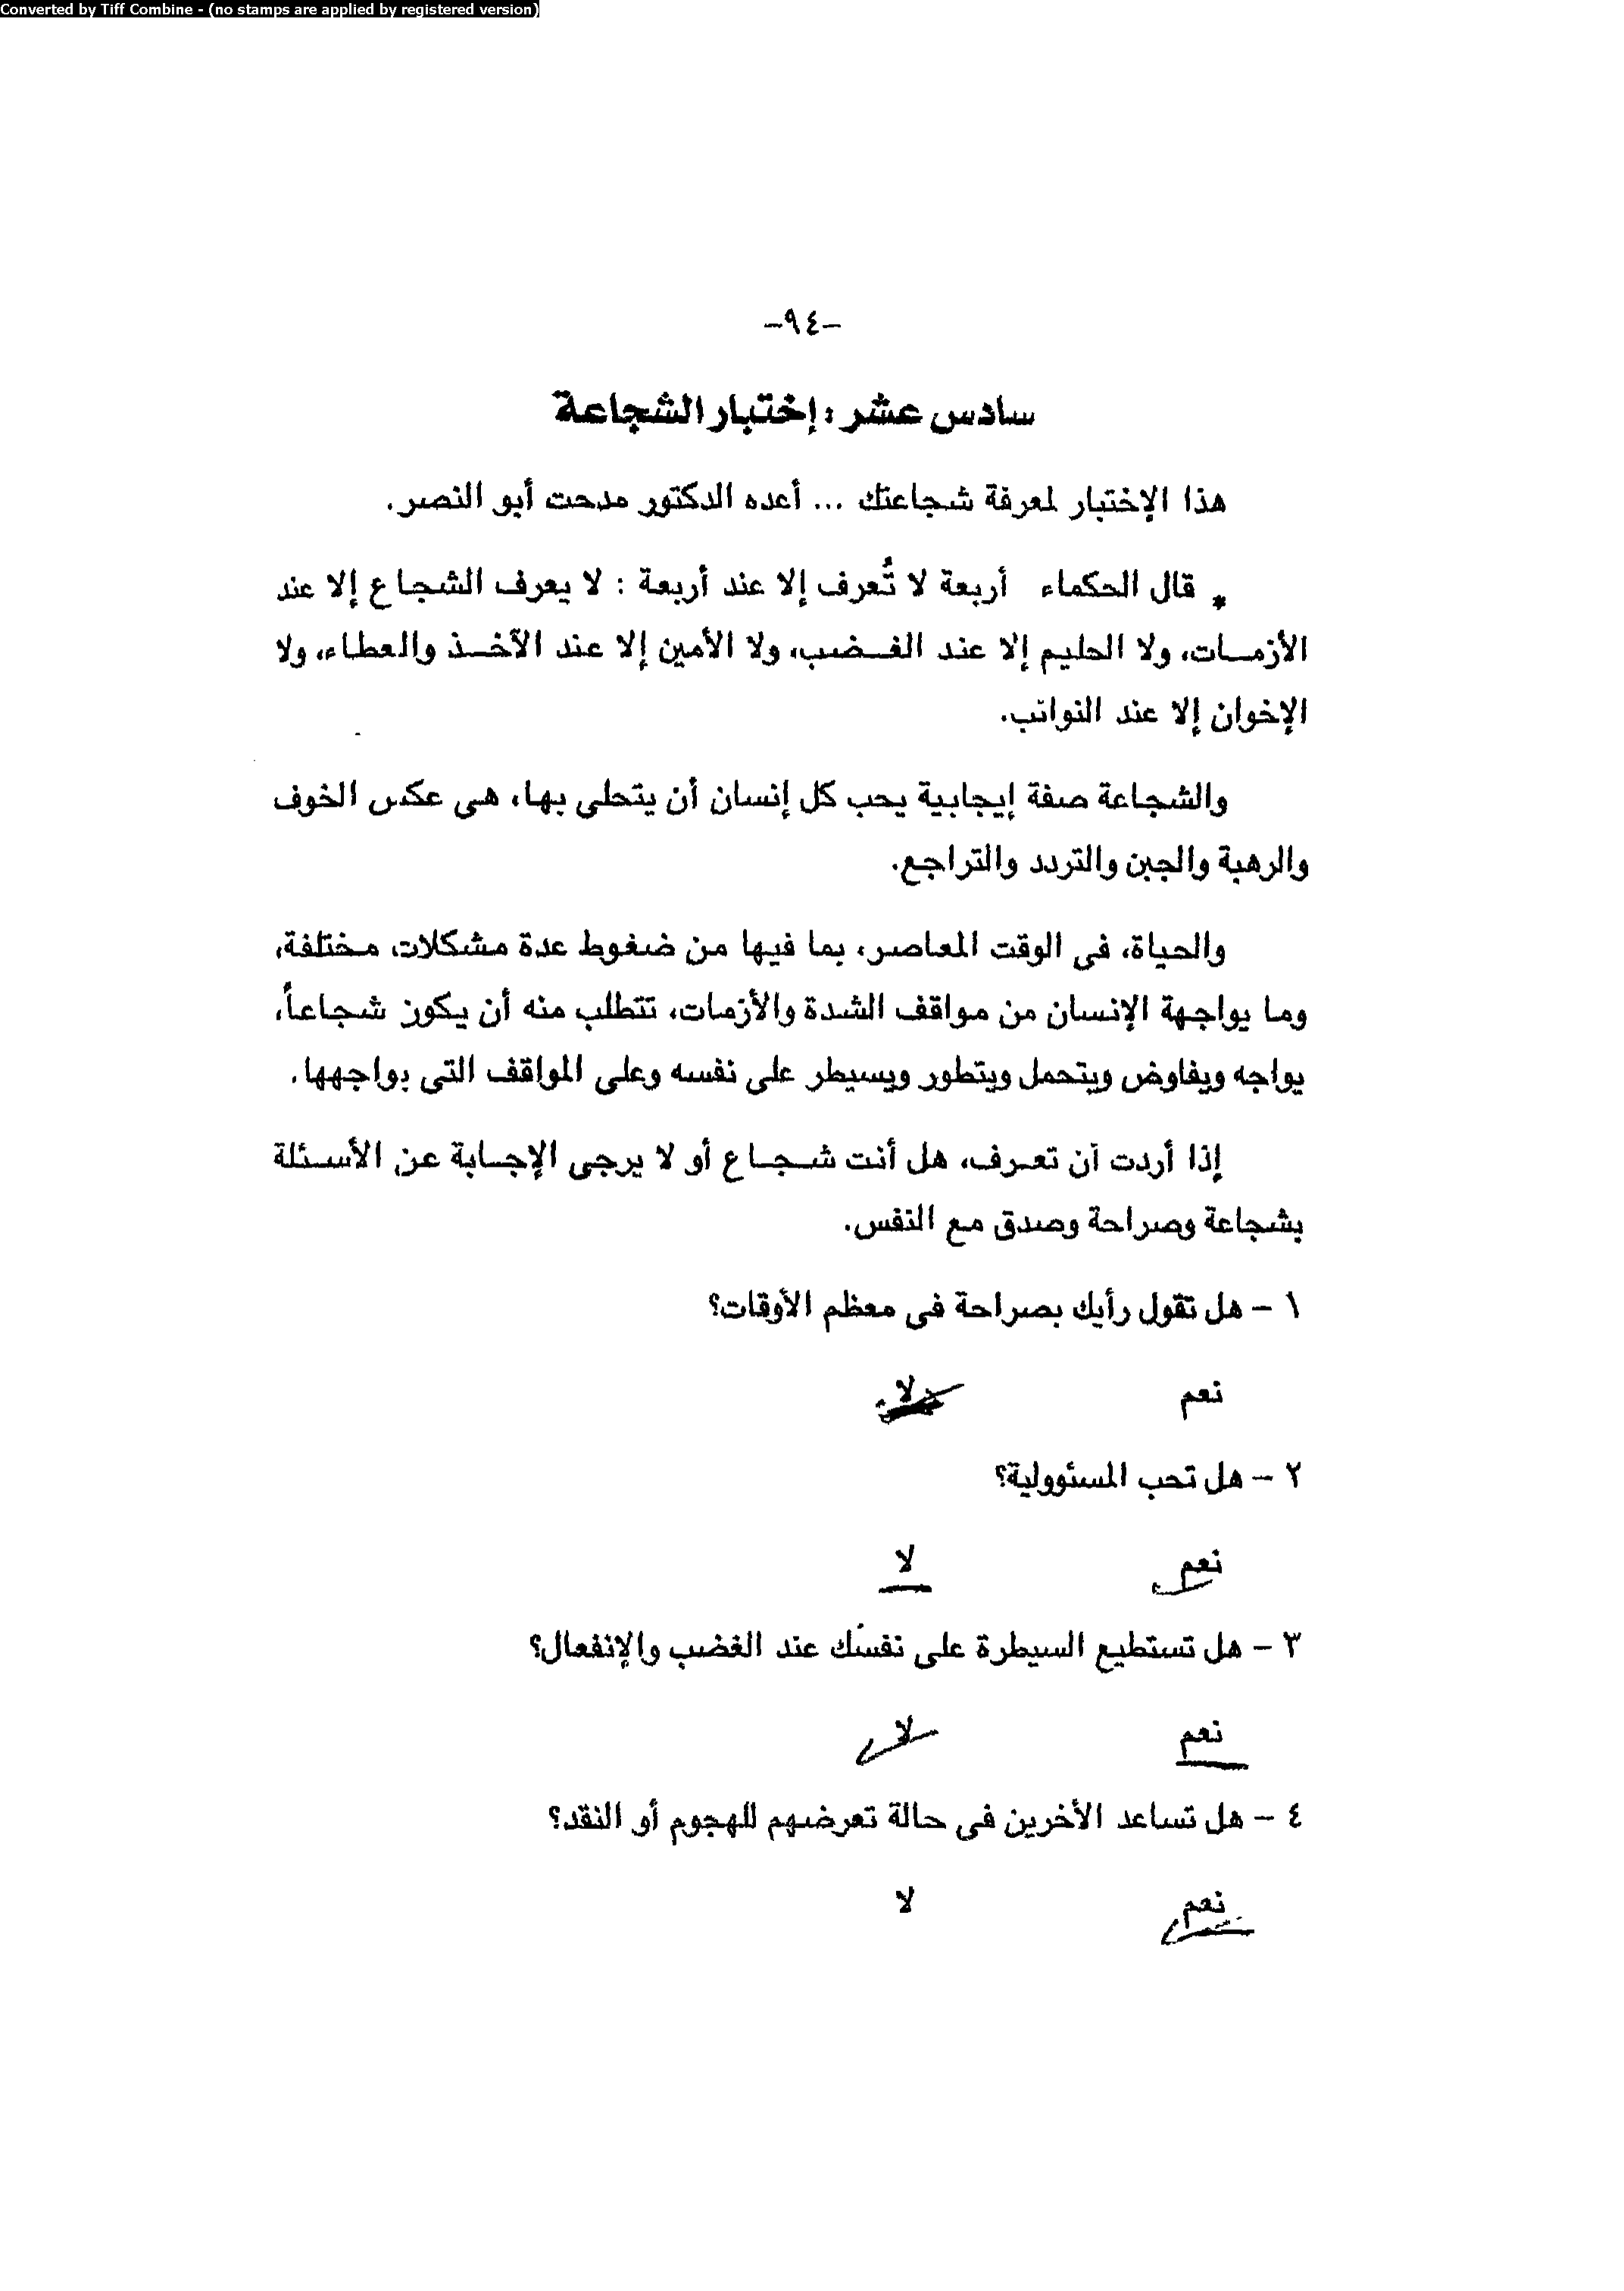 Converted by Tiff Combine - (no stamps are applied by registered version)
-٩٤-
سادس عشر : إختبار الشجاعة
هذا الإختبار لمعرفة شجاعتك ... أعده الدكتور مدحت أبو النصر.
* قال الحكماء أربعة لا تُعرف إلا عند أربعة : لا يعرف الشجاع إلا عند
الأزمات، ولا الحليم إلا عند الغضب، ولا الأمين إلا عند الآخذ والعطاء، ولا
الإخوان إلا عند النوائب.
والشجاعة صفة إيجابية يحب كل إنسان أن يتحلى بها، هى عكس الخوف
والرهبة والجبن والتردد والتراجع.
والحياة، فى الوقت المعاصر، بما فيها من ضغوط عدة مشكلات مختلفة،
وما يواجهة الإنسان من مواقف الشدة والأزمات، تتطلب منه أن يكون شجاعاً،
يواجه ويفاوض ويتحمل ويتطور ويسيطر على نفسه وعلى المواقف التى يواجهها.
إذا أردت أن تعرف، هل أنت شجاع أو لا يرجى الإجابة عن الأسئلة
بشجاعة وصراحة وصدق مع النفس.
١ - هل تقول رأيك بصراحة فى معظم الأوقات؟
نعم لا
٢ - هل تحب المسئوولية؟
نعم لا
٣ - هل تستطيع السيطرة على نفسك عند الغضب والإنفعال؟
نعم لا
٤ - هل تساعد الأخرين فى حالة تعرضهم للهجوم أو النقد؟
نعم لا